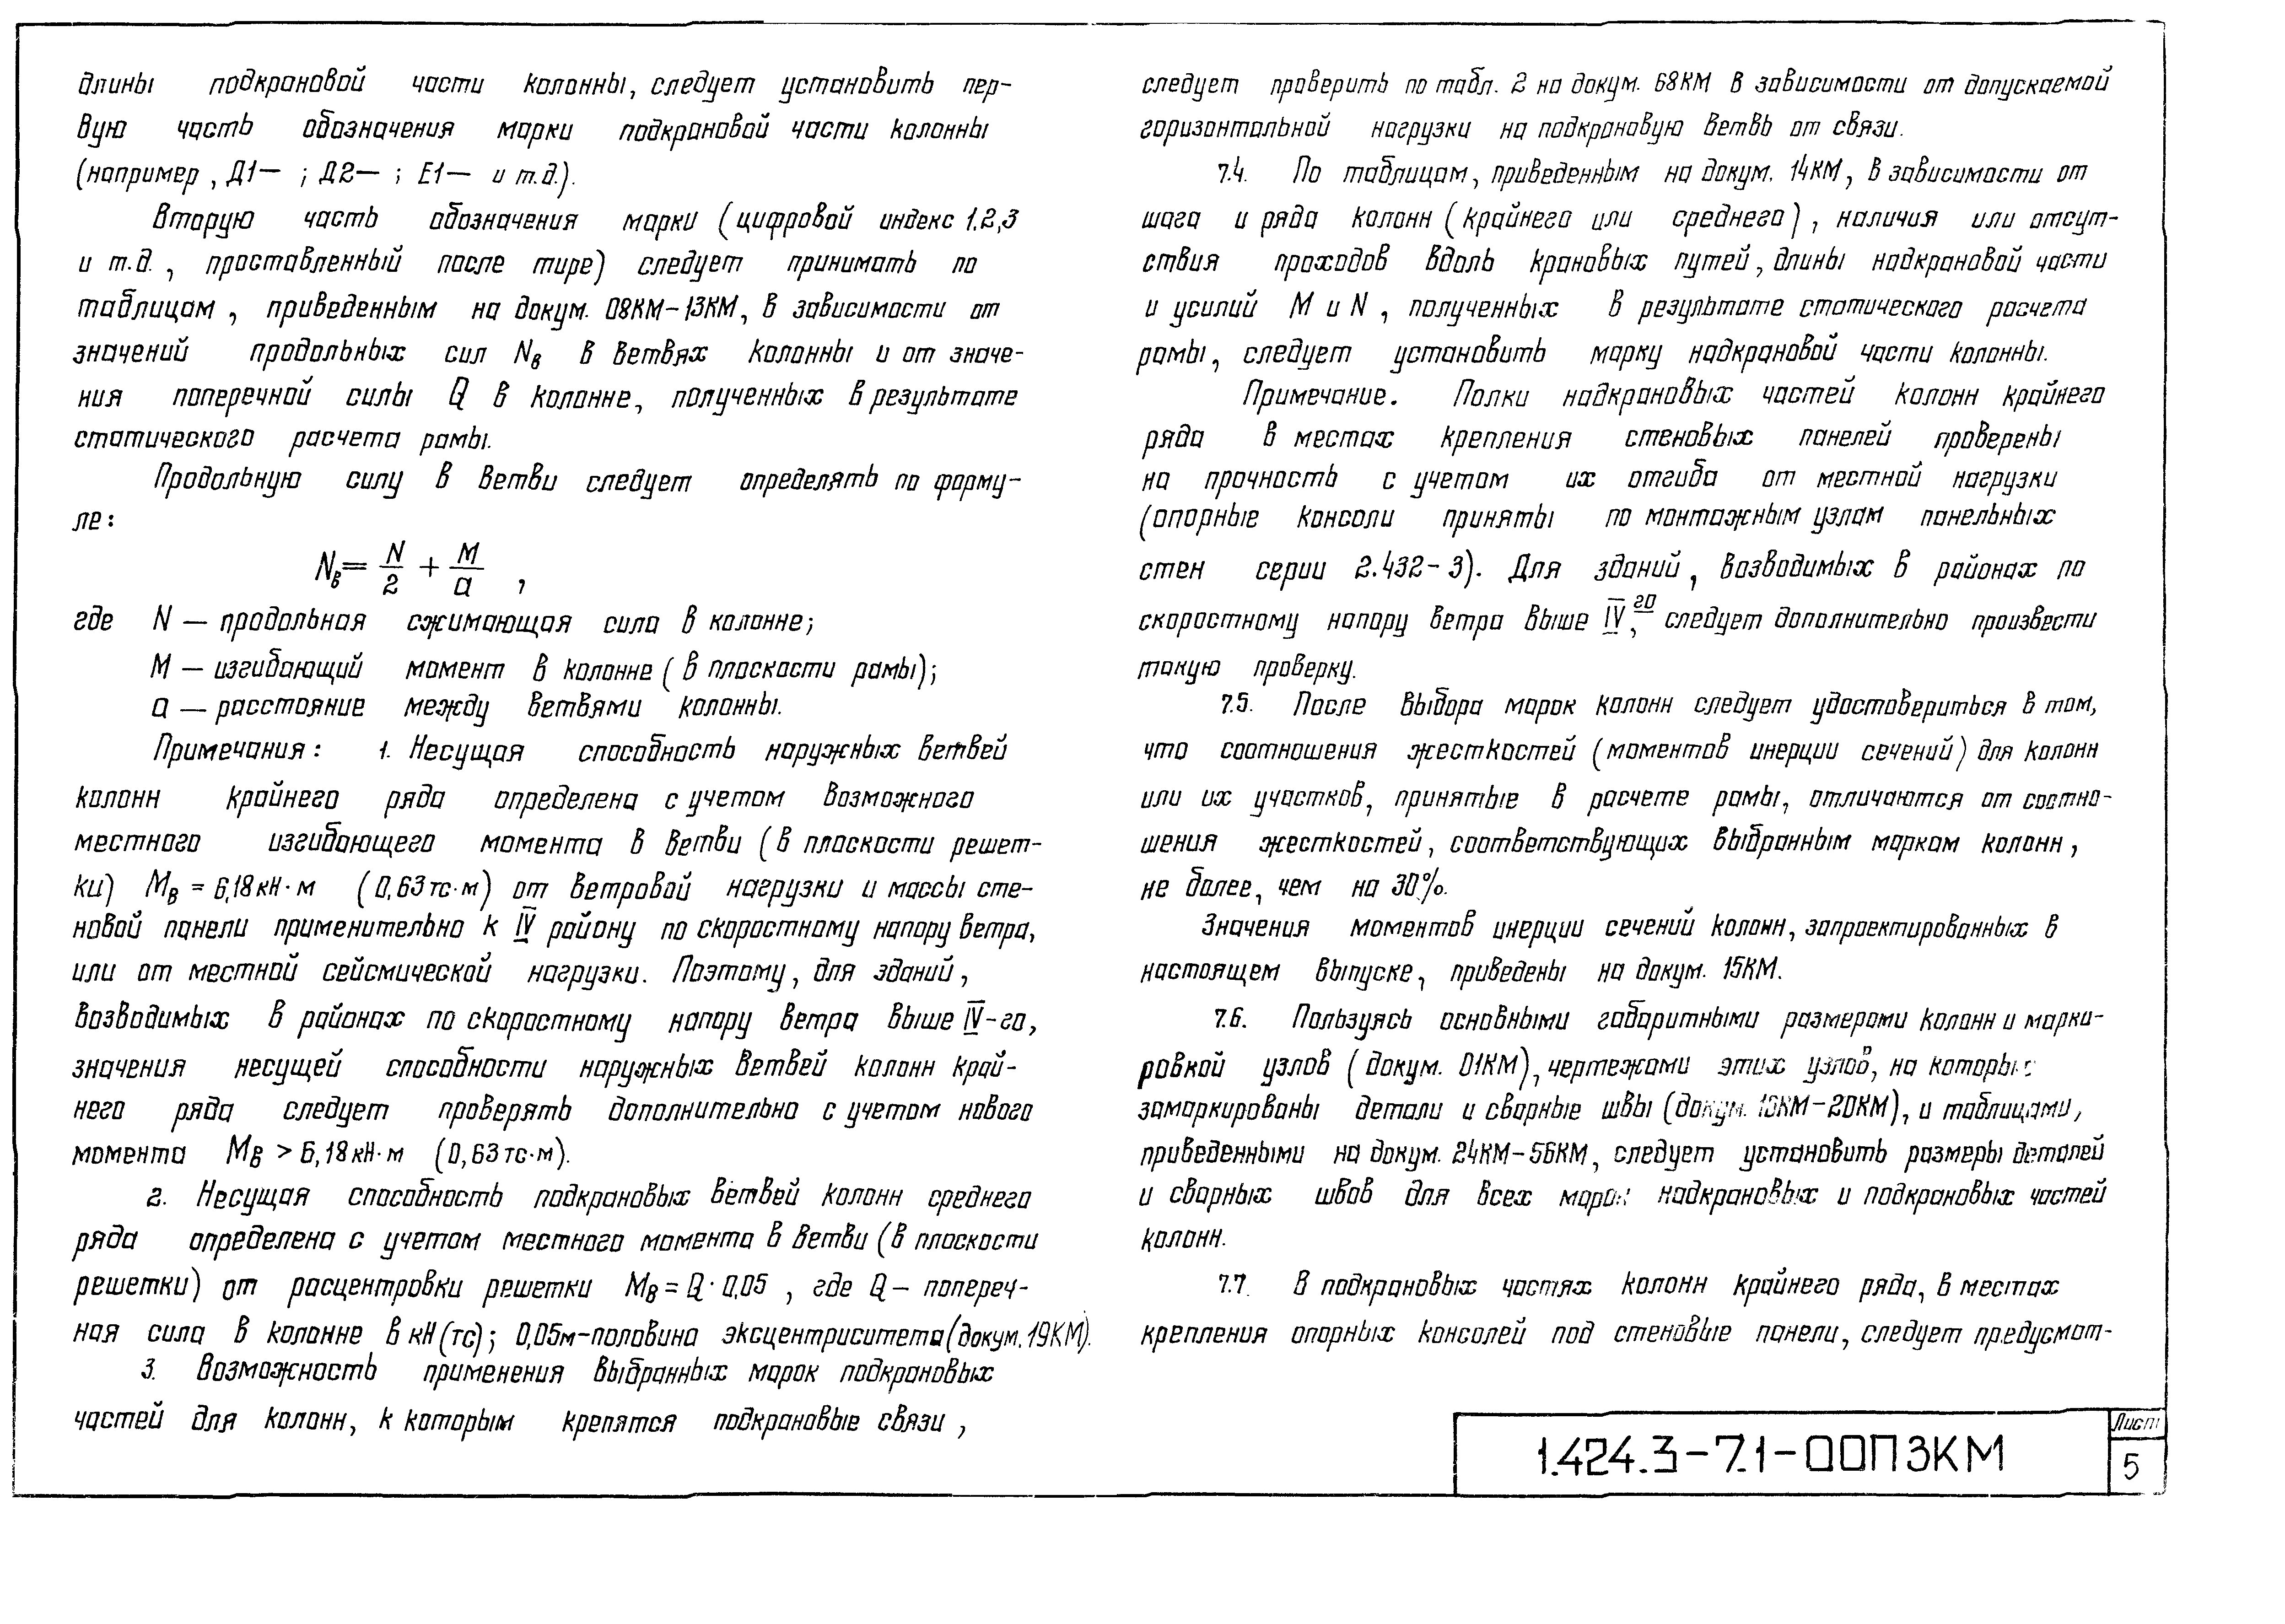 длины подкрановой части колонны, следует установить пер-
вую часть обозначения марки подкрановой части колонны
(например, Д1— ; Д2— ; Е1— и т.д.).
Вторую часть обозначения марки (цифровой индекс 1,2,3
и т.д., проставленный после тире) следует принимать по
таблицам, приведенным на докум. 08КМ-13КМ, в зависимости от
значений продольных сил Nв в ветвях колонны и от значе-
ния поперечной силы Q в колонне, полученных в результате
статического расчета рамы.
Продольную силу в ветви следует определять по форму-
ле:
Nв = N/2 + M/a ,
где N — продольная сжимающая сила в колонне;
М — изгибающий момент в колонне (в плоскости рамы);
а — расстояние между ветвями колонны.
Примечания: 1. Несущая способность наружных ветвей
колонн крайнего ряда определена с учетом возможного
местного изгибающего момента в ветви (в плоскости решет-
ки) Мв = 6,18 кН·м (0,63 тс·м) от ветровой нагрузки и массы сте-
новой панели применительно к IV району по скоростному напору ветра,
или от местной сейсмической нагрузки. Поэтому, для зданий,
возводимых в районах по скоростному напору ветра выше IV-го,
значения несущей способности наружных ветвей колонн край-
него ряда следует проверять дополнительно с учетом нового
момента Мв > 6,18 кН·м (0,63 тс·м).
2. Несущая способность подкрановых ветвей колонн среднего
ряда определена с учетом местного момента в ветви (в плоскости
решетки) от расцентровки решетки Мв = Q·0,05 , где Q — попереч-
ная сила в колонне в кН(тс); 0,05м-половина эксцентриситета (докум. 19КМ).
3. Возможность применения выбранных марок подкрановых
частей для колонн, к которым крепятся подкрановые связи,
следует проверить по табл. 2 на докум. 68КМ в зависимости от допускаемой
горизонтальной нагрузки на подкрановую ветвь от связи.
7.4. По таблицам, приведенным на докум. 14КМ, в зависимости от
шага и ряда колонн (крайнего или среднего), наличия или отсут-
ствия проходов вдоль крановых путей, длины надкрановой части
и усилий М и N, полученных в результате статического расчета
рамы, следует установить марку надкрановой части колонны.
Примечание. Полки надкрановых частей колонн крайнего
ряда в местах крепления стеновых панелей проверены
на прочность с учетом их отгиба от местной нагрузки
(опорные консоли приняты по монтажным узлам панельных
стен серии 2.432-3). Для зданий, возводимых в районах по
скоростному напору ветра выше IV го, следует дополнительно произвести
такую проверку.
7.5. После выбора марок колонн следует удостовериться в том,
что соотношения жесткостей (моментов инерции сечений) для колонн
или их участков, принятые в расчете рамы, отличаются от соотно-
шения жесткостей, соответствующих выбранным маркам колонн,
не более, чем на 30%.
Значения моментов инерции сечений колонн, запроектированных в
настоящем выпуске, приведены на докум. 15КМ.
7.6. Пользуясь основными габаритными размерами колонн и марки-
ровкой узлов (докум. 01КМ), чертежами этих узлов, на которых
замаркированы детали и сварные швы (докум. 16КМ-20КМ), и таблицами,
приведенными на докум. 24КМ-56КМ, следует установить размеры деталей
и сварных швов для всех марок надкрановых и подкрановых частей
колонн.
7.7. В подкрановых частях колонн крайнего ряда, в местах
крепления опорных консолей под стеновые панели, следует предусмот-
1.424.3-7.1-00ПЗКМ
Лист
5